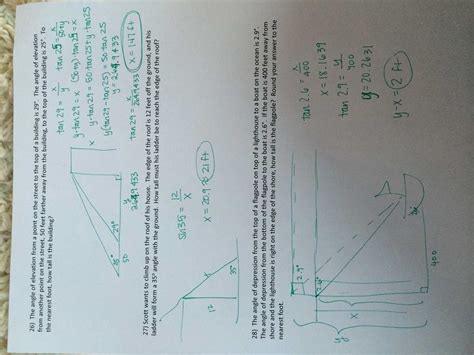 26) The angle of elevation from a point on the street to the top of a building is 29°. The angle of elevation
from another point on the street, 50 feet farther away from the building, to the top of the building is 25°. To
the nearest foot, how tall is the building?
tan 29 = x/y
tan 25 = x/(50+y)
y·tan 29 = x
(50+y)·tan 25 = x
y·tan 29 = 50 tan 25 + y·tan 25
y(tan 29 - tan 25) = 50 tan 25
tan 29 =
x = 147 ft
x
29°
50
27) Scott wants to climb up on the roof of his house. The edge of the roof is 12 feet off the ground, and his
ladder will form a 35° angle with the ground. How tall must his ladder be to reach the edge of the roof?
12
x
35°
sin 35 = 12/x
x = 20.9 ≈ 21 ft
28) The angle of depression from the top of a flagpole on top of a lighthouse to a boat on the ocean is 2.9°.
The angle of depression from the bottom of the flagpole to the boat is 2.6°. If the boat is 400 feet away from
shore and the lighthouse is right on the edge of the shore, how tall is the flagpole? Round your answer to the
nearest foot.
tan 2.6 = x/400
x = 18.1639
tan 29 = y/400
y = 20.2631
y-x = 2 ft
2.9°
x
y
400